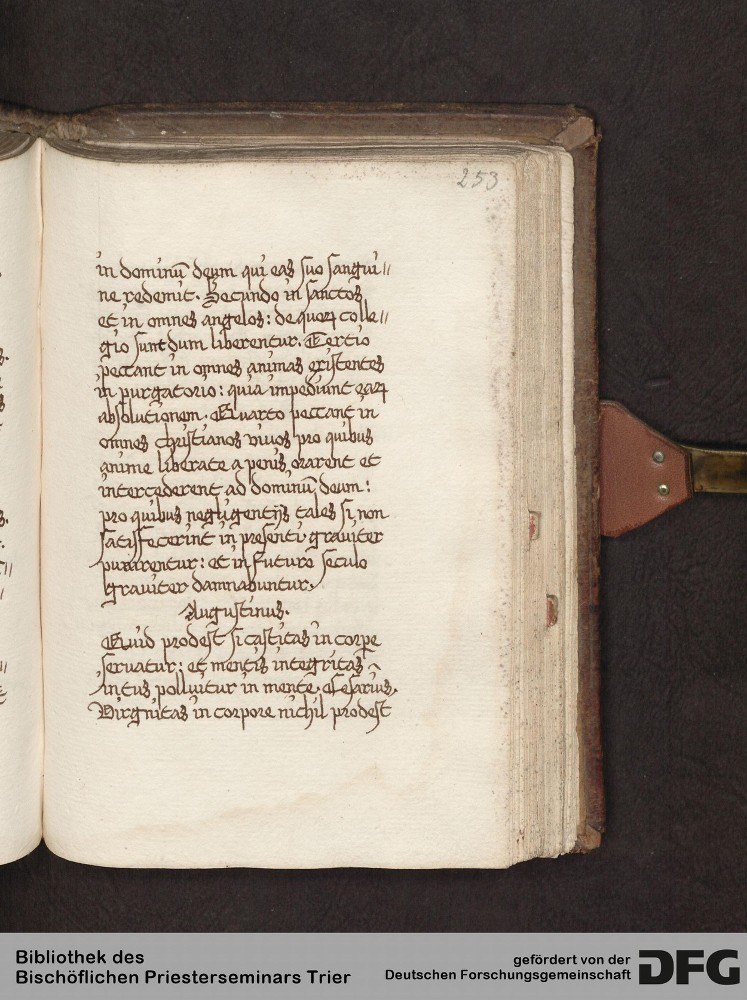 253
in dominū deum qui eas suo sangui//
ne redemit. Secundo in sanctos
et in omnes angelos: de quoꝝ colle//
gio sunt dum liberentur. Tertio
peccant in omnes animas existentes
in purgatorio: quia impediunt eaꝝ
absolutionem. Quarto peccant in
omnes christianos viuos pro quibus
anime liberate a penis orarent et
intercederent ad dominū deum:
pro quibus negligentijs tales si non
satisfecerint in presenti grauiter
punirentur: et in futuro seculo
grauiter damnabuntur.
Augustinus.
Quid prodest si castitas in corpe
seruatur: et mentis integritas
intus polluitur in mente. Cesarius.
Virgnitas in corpore nichil prodest
Bibliothek des
Bischöflichen Priesterseminars Trier
gefördert von der
Deutschen Forschungsgemeinschaft
DFG